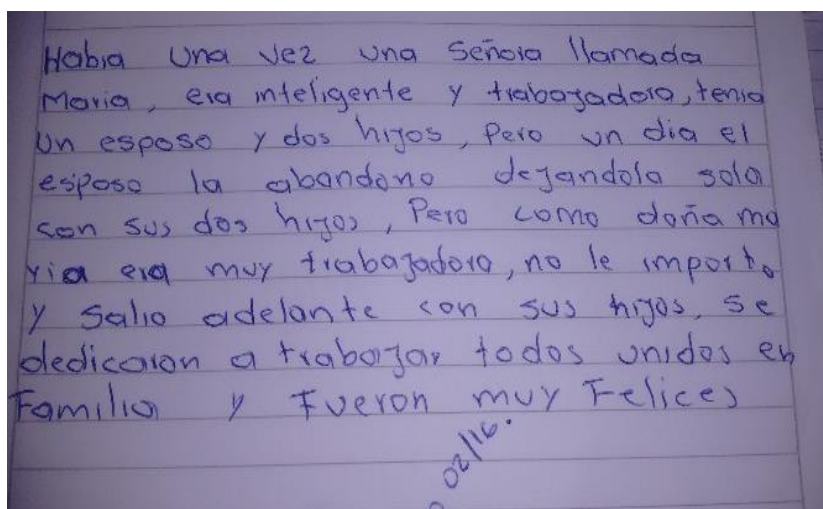 Habia una vez una Señora llamada
Maria, era inteligente y trabajadora, tenia
un esposo y dos hijos, Pero un dia el
esposo la abandono dejandola sola
con sus dos hijos, Pero como doña ma
ria era muy trabajadora, no le importo
y Salio adelante con sus hijos, se
dedicaron a trabajar todos unidos en
Familia y Fueron muy Felices
02/16.